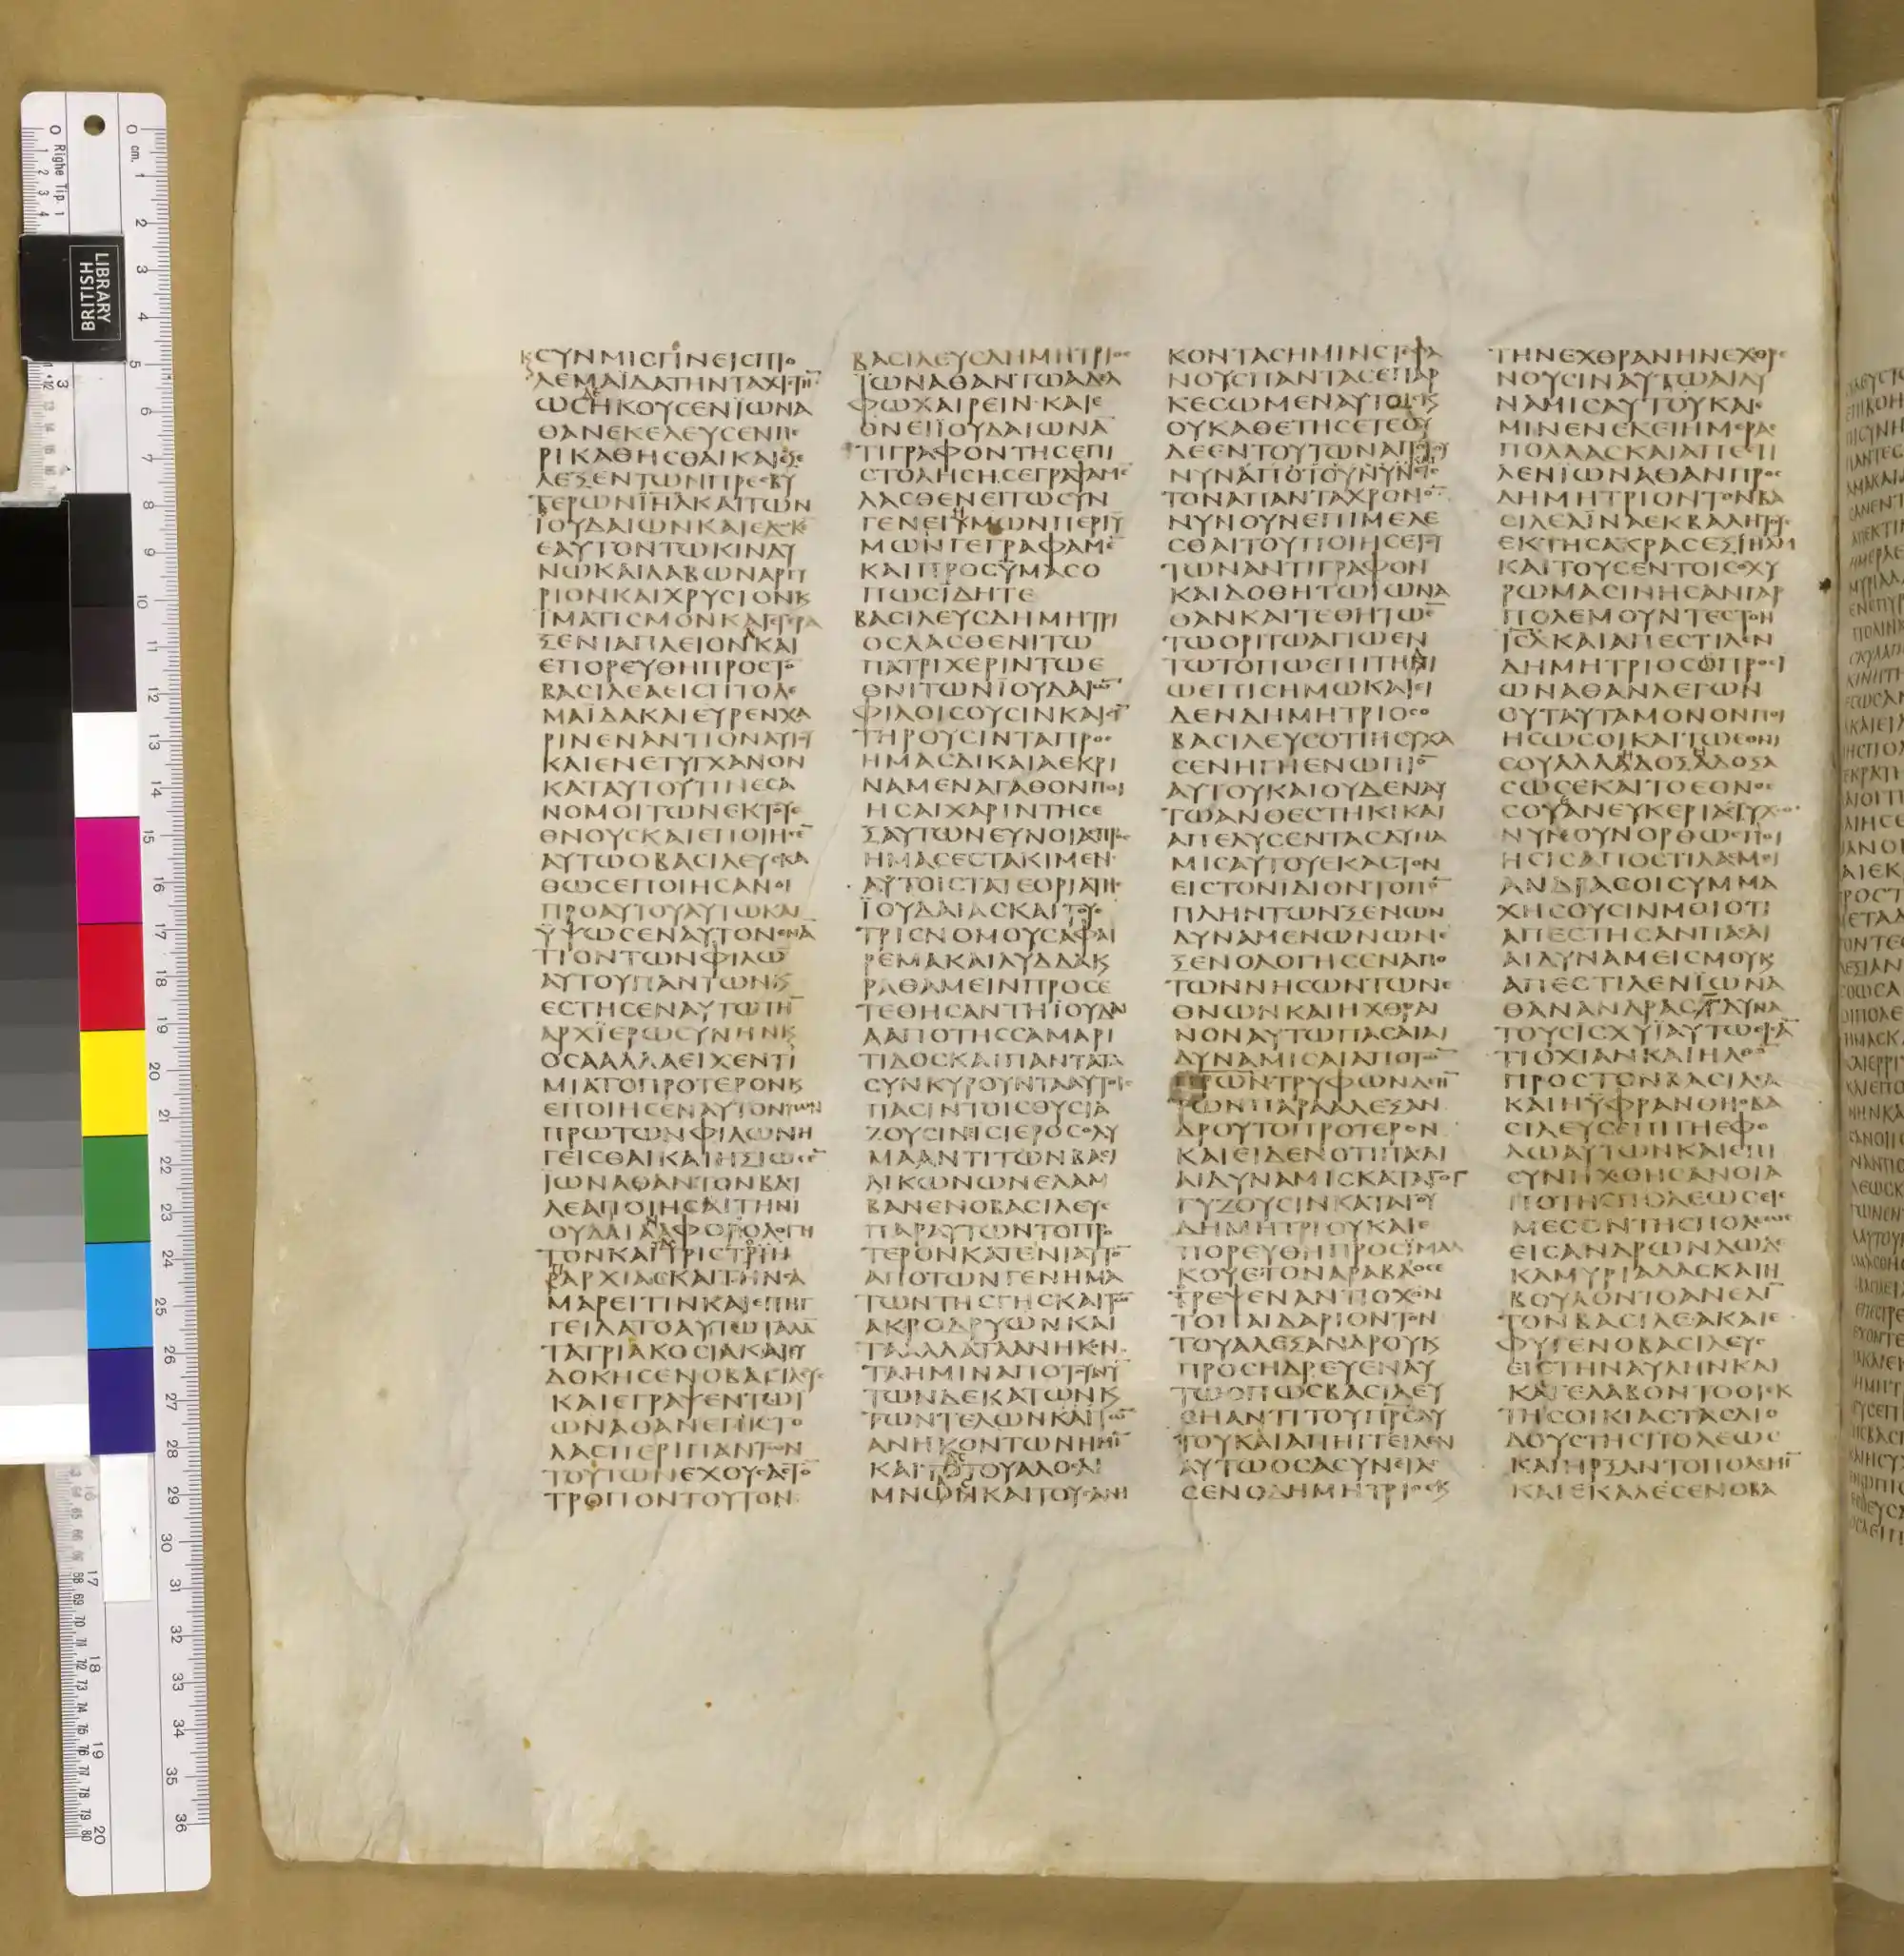 ΣΥΝΜΙΣΓΙΝΕΙΣΠΤΟ
ΛΕΜΑΪΔΑΤΗΝΤΑΧΙΣΤΗ
ΩΣΗΚΟΥΣΕΝΪΩΝΑ
ΘΑΝΕΚΕΛΕΥΣΕΝΠΕ
ΡΙΚΑΘΗΣΘΑΙΚΑΙΕΠΕ
ΛΕΞΕΝΤΩΝΠΡΕΣΒΥ
ΤΕΡΩΝΙΗΛΚΑΙΤΩΝ
ΪΟΥΔΑΙΩΝΚΑΙΕΔΩΚΕ
ΕΑΥΤΟΝΤΩΚΙΝΔΥ
ΝΩΚΑΙΛΑΒΩΝΑΡΓΥ
ΡΙΟΝΚΑΙΧΡΥΣΙΟΝΚ
ΪΜΑΤΙΣΜΟΝΚΑΙΕΤΕΡΑ
ΞΕΝΙΑΠΛΕΙΟΝΚΑΙ
ΕΠΟΡΕΥΘΗΠΡΟΣΤΟ
ΒΑΣΙΛΕΑΕΙΣΠΤΟΛΕ
ΜΑΪΔΑΚΑΙΕΥΡΕΝΧΑ
ΡΙΝΕΝΑΝΤΙΟΝΑΥΤΟΥ
ΚΑΙΕΝΕΤΥΓΧΑΝΟΝ
ΚΑΤΑΥΤΟΥΤΙΝΕΣΑ
ΝΟΜΟΙΤΩΝΕΚΤΟΥΕ
ΘΝΟΥΣΚΑΙΕΠΟΙΗΣΕ
ΑΥΤΩΟΒΑΣΙΛΕΥΣΚΑ
ΘΩΣΕΠΟΙΗΣΑΝΟΙ
ΠΡΟΑΥΤΟΥΑΥΤΩΚΑΙ
ΫΨΩΣΕΝΑΥΤΟΝΕΝΑ
ΤΙΟΝΤΩΝΦΙΛΩ
ΑΥΤΟΥΠΑΝΤΩΝΚ
ΕΣΤΗΣΕΝΑΥΤΩΤΗ
ΑΡΧΪΕΡΩΣΥΝΗΝΚ
ΟΣΑΑΛΛΑΕΙΧΕΝΤΙ
ΜΙΑΤΟΠΡΟΤΕΡΟΝΚ
ΕΠΟΙΗΣΕΝΑΥΤΟΝΤΩΝ
ΠΡΩΤΩΝΦΙΛΩΝΗ
ΓΕΙΣΘΑΙΚΑΙΗΞΙΩΣΕ
ΙΩΝΑΘΑΝΤΟΝΒΑΣΙ
ΛΕΑΠΟΙΗΣΑΙΤΗΝΙ
ΟΥΔΑΙΑΑΦΟΡΟΛΟΓΗ
ΤΟΝΚΑΙΤΡΙΣΤΡΙΗ
ΠΑΡΧΙΑΣΚΑΙΤΗΝΣΑ
ΜΑΡΕΙΤΙΝΚΑΙΕΠΗΓ
ΓΕΙΛΑΤΟΑΥΤΩΤΑΛΑ
ΤΑΤΡΙΑΚΟΣΙΑΚΑΙΕΥ
ΔΟΚΗΣΕΝΟΒΑΣΙΛΕΥΣ
ΚΑΙΕΓΡΑΨΕΝΤΩΙ
ΩΝΑΘΑΝΕΠΙΣΤΟ
ΛΑΣΠΕΡΙΠΑΝΤΩΝ
ΤΟΥΤΩΝΕΧΟΥΣΑΣΤΟ
ΤΡΟΠΟΝΤΟΥΤΟΝ
ΒΑΣΙΛΕΥΣΔΗΜΗΤΡΙΟΣ
ΪΩΝΑΘΑΝΤΩΑΔΕΛ
ΦΩΧΑΙΡΕΙΝΚΑΙΕ
ΘΝΕΙΪΟΥΔΑΙΩΝΑ
ΤΙΓΡΑΦΟΝΤΗΣΕΠΙ
ΣΤΟΛΗΣΗΣΕΓΡΑΨΑΜΕ
ΛΑΣΘΕΝΕΙΤΩΣΥΝ
ΓΕΝΕΙΫΜΩΝΠΕΡΙΫ
ΜΩΝΓΕΓΡΑΦΑΜΕ
ΚΑΙΠΡΟΣΫΜΑΣΟ
ΠΩΣΪΔΗΤΕ
ΒΑΣΙΛΕΥΣΔΗΜΗΤΡΙ
ΟΣΛΑΣΘΕΝΙΤΩ
ΠΑΤΡΙΧΕΡΙΝΤΩΕ
ΘΝΙΤΩΝΪΟΥΔΑΙΩ
ΦΙΛΟΙΣΟΥΣΙΝΚΑΙΣΥ
ΤΗΡΟΥΣΙΝΤΑΠΡΟΣ
ΗΜΑΣΔΙΚΑΙΑΕΚΡΙ
ΝΑΜΕΝΑΓΑΘΟΝΠΟΙ
ΗΣΑΙΧΑΡΙΝΤΗΣΕ
ΞΑΥΤΩΝΕΥΝΟΙΑΣΠΡΟΣ
ΗΜΑΣΕΣΤΑΚΙΜΕΝ
ΑΥΤΟΙΣΤΑΤΕΟΡΙΑΤΗΣ
ΪΟΥΔΑΙΑΣΚΑΙΤΟΥΣ
ΤΡΙΣΝΟΜΟΥΣΑΦΑΙ
ΡΕΜΑΚΑΙΛΥΔΔΑΚ
ΡΑΘΑΜΕΙΝΠΡΟΣΕ
ΤΕΘΗΣΑΝΤΗΪΟΥΔΑΙ
ΑΑΠΟΤΗΣΣΑΜΑΡΙ
ΤΙΔΟΣΚΑΙΠΑΝΤΑΤΑ
ΣΥΝΚΥΡΟΥΝΤΑΑΥΤΟΙΣ
ΠΑΣΙΝΤΟΙΣΘΥΣΙΑ
ΖΟΥΣΙΝΙΣΙΕΡΟΣΟΛΥ
ΜΑΑΝΤΙΤΩΝΒΑΣΙ
ΛΙΚΩΝΩΝΕΛΑΜ
ΒΑΝΕΝΟΒΑΣΙΛΕΥΣ
ΠΑΡΑΥΤΩΝΤΟΠΡΟ
ΤΕΡΟΝΚΑΤΕΝΙΑΥΤΟ
ΑΠΟΤΩΝΓΕΝΗΜΑ
ΤΩΝΤΗΣΓΗΣΚΑΙΤΩ
ΑΚΡΟΔΡΥΩΝΚΑΙ
ΤΑΑΛΛΑΤΑΑΝΗΚΟΝ
ΤΑΗΜΙΝΑΠΟΤΟΥΝΥ
ΤΩΝΔΕΚΑΤΩΝΚ
ΤΩΝΤΕΛΩΝΚΑΙΤΩ
ΑΝΗΚΟΝΤΩΝΗΜΙ
ΚΑΙΤΟΤΟΥΑΛΟΣΑΙ
ΜΝΩΗΚΑΙΤΟΥΣΑΝΗ
ΚΟΝΤΑΣΗΜΙΝΣΤΕΦΑ
ΝΟΥΣΠΑΝΤΑΣΕΠΑΡ
ΚΕΣΩΜΕΝΑΥΤΟΙΣΚ
ΟΥΚΑΘΕΤΗΣΕΤΕΟΥ
ΔΕΕΝΤΟΥΤΩΝΑΠΟΤΟΥ
ΝΥΝΑΠΟΤΟΥΝΥΝ
ΤΟΝΑΠΑΝΤΑΧΡΟΝΟ
ΝΥΝΟΥΝΕΠΙΜΕΛΕ
ΣΘΑΙΤΟΥΠΟΙΗΣΕΤΕ
ΤΩΝΑΝΤΙΓΡΑΦΟΝ
ΚΑΙΔΟΘΗΤΩΪΩΝΑ
ΘΑΝΚΑΙΤΕΘΗΤΩΕ
ΤΩΟΡΙΤΩΑΓΙΩΕΝ
ΤΩΤΟΠΩΕΠΙΤΗΔΙ
ΩΕΠΙΣΗΜΩΚΑΙΕΙ
ΔΕΝΔΗΜΗΤΡΙΟΣΟ
ΒΑΣΙΛΕΥΣΟΤΙΗΣΥΧΑ
ΣΕΝΗΓΗΕΝΩΠΙΟ
ΑΥΤΟΥΚΑΙΟΥΔΕΝΑΥ
ΤΩΑΝΘΕΣΤΗΚΙΚΑΙ
ΑΠΕΛΥΣΕΝΤΑΣΔΥΝΑ
ΜΙΣΑΥΤΟΥΕΚΑΣΤΟΝ
ΕΙΣΤΟΝΙΔΙΟΝΤΟΠΟ
ΠΛΗΝΤΩΝΞΕΝΩΝ
ΔΥΝΑΜΕΝΩΝΩΝΕ
ΞΕΝΟΛΟΓΗΣΕΝΑΠΟ
ΤΩΝΝΗΣΩΝΤΩΝΕ
ΘΝΩΝΚΑΙΗΧΘΡΑΙ
ΝΟΝΑΥΤΩΠΑΣΑΙΑΙ
ΔΥΝΑΜΙΣΑΙΑΠΟΤΩ
ΠΡΩΝΤΡΥΦΩΝΔΕΗ
ΤΩΝΠΑΡΑΑΛΕΞΑΝ
ΔΡΟΥΤΟΠΡΟΤΕΡΟΝ
ΚΑΙΕΙΔΕΝΟΤΙΠΑΣΑΙ
ΑΙΔΥΝΑΜΙΣΚΑΤΑΓΟΓ
ΓΥΖΟΥΣΙΝΚΑΤΑΤΟΥ
ΔΗΜΗΤΡΙΟΥΚΑΙΕ
ΠΟΡΕΥΘΗΠΡΟΣΪΜΑΛ
ΚΟΥΕΤΟΝΑΡΑΒΑΟΣΕ
ΤΡΕΨΕΝΑΝΤΙΟΧΟΝ
ΤΟΠΑΙΔΑΡΙΟΝΤΟΝ
ΤΟΥΑΛΕΞΑΝΔΡΟΥΚ
ΠΡΟΣΗΔΡΕΥΕΝΑΥ
ΤΩΟΠΩΣΒΑΣΙΛΕΥ
ΘΗΑΝΤΙΤΟΥΠΡΣΑΥ
ΤΟΥΚΑΙΑΠΗΓΓΕΙΛΕΝ
ΑΥΤΩΟΣΑΣΥΝΕΤΕ
ΣΕΝΟΔΗΜΗΤΡΙΟΣΚ
ΤΗΝΕΧΘΡΑΝΗΝΕΧΘΡΕ
ΝΟΥΣΙΝΑΥΤΩΑΙΔΥ
ΝΑΜΙΣΑΥΤΟΥΚΑΙ
ΜΙΝΕΝΕΚΕΙΗΜΕΡΑΣ
ΠΟΛΛΑΣΚΑΙΑΠΕΣΤΙ
ΛΕΝΪΩΝΑΘΑΝΠΡΟΣ
ΔΗΜΗΤΡΙΟΝΤΟΝΒΑ
ΣΙΛΕΑΪΝΑΕΚΒΑΛΗΤΟΥΣ
ΕΚΤΗΣΑΚΡΑΣΕΞΙΗΛΜ
ΚΑΙΤΟΥΣΕΝΤΟΙΣΟΧΥ
ΡΩΜΑΣΙΝΗΣΑΝΓΑΡ
ΠΟΛΕΜΟΥΝΤΕΣΤΟΝ
ΙΣΛΚΑΙΑΠΕΣΤΙΛΕΝ
ΔΗΜΗΤΡΙΟΣΠΡΟΣΙ
ΩΝΑΘΑΝΛΕΓΩΝ
ΟΥΤΑΥΤΑΜΟΝΟΝΠΟΙ
ΗΣΩΣΟΙΚΑΙΤΩΕΘΝΙ
ΣΟΥΑΛΛΑΔΟΞΑΔΟΞΑ
ΣΩΣΕΚΑΙΤΟΕΘΝΟΣ
ΣΟΥΑΝΕΥΚΕΡΙΑΣΤΥΧΩ
ΝΥΝΟΥΝΟΡΘΩΣΠΟΙ
ΗΣΙΣΑΠΟΣΤΙΛΑΣΜΟΙ
ΑΝΔΡΑΣΟΙΣΥΜΜΑ
ΧΗΣΟΥΣΙΝΜΟΙΟΤΙ
ΑΠΕΣΤΗΣΑΝΠΑΣΑΙ
ΑΙΔΥΝΑΜΕΙΣΜΟΥΚ
ΑΠΕΣΤΙΛΕΝΪΩΝΑ
ΘΑΝΑΝΔΡΑΣΓΔΥΝΑ
ΤΟΥΣΙΣΧΥΪΑΥΤΩΕΙΣΑ
ΤΙΟΧΙΑΝΚΑΙΗΛΘΟ
ΠΡΟΣΤΟΝΒΑΣΙΛΕΑ
ΚΑΙΗΫΦΡΑΝΘΗΟΒΑ
ΣΙΛΕΥΣΕΠΙΤΗΕΦΟ
ΔΩΑΥΤΩΝΚΑΙΕΠΙ
ΣΥΝΗΧΘΗΣΑΝΟΙΑ
ΠΟΤΗΣΠΟΛΕΩΣΕΙΣ
ΜΕΣΟΝΤΗΣΠΟΛΕΩΣ
ΕΙΣΑΝΔΡΩΝΔΩΔΕ
ΚΑΜΥΡΙΑΔΑΣΚΑΙΗ
ΒΟΥΛΟΝΤΟΑΝΕΛΙ
ΤΟΝΒΑΣΙΛΕΑΚΑΙΕ
ΦΥΓΕΝΟΒΑΣΙΛΕΥΣ
ΕΙΣΤΗΝΑΥΛΗΝΚΑΙ
ΚΑΤΕΛΑΒΟΝΤΟΟΙΕΚ
ΤΗΣΟΙΚΙΑΣΤΑΣΔΙΟ
ΔΟΥΣΤΗΣΠΟΛΕΩΣ
ΚΑΙΗΡΞΑΝΤΟΠΟΛΕΜΙ
ΚΑΙΕΚΑΛΕΣΕΝΟΒΑ